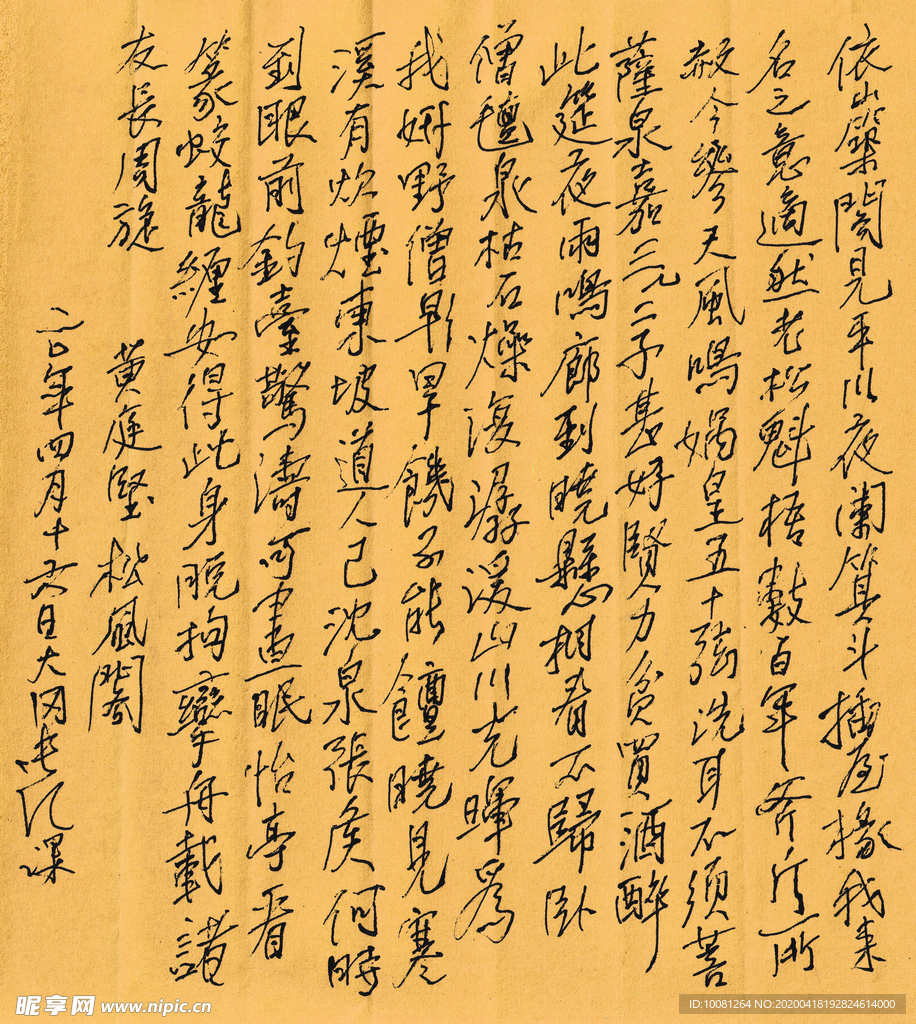 依山築閣見平川夜闌箕斗插屋椽我来
名之意適然老松魁梧數百年斧斤所
赦今參天風鳴媧皇五十弦洗耳不須菩
薩泉嘉二三子甚好賢力貧買酒醉
此筵夜雨鳴廊到曉懸相看不歸臥
僧氈泉枯石燥復潺湲山川光暉為
我妍野僧旱饑不能饘曉見寒
溪有炊煙東坡道人已沈泉張侯何時
到眼前釣臺驚濤可晝眠怡亭看
篆蛟龍纏安得此身脱拘攣舟載諸
友長周旋
黄庭堅松風閣
年四月十六日大
昵享网 www.nipic.cn
ID:10081264 NO:20200418192824614000